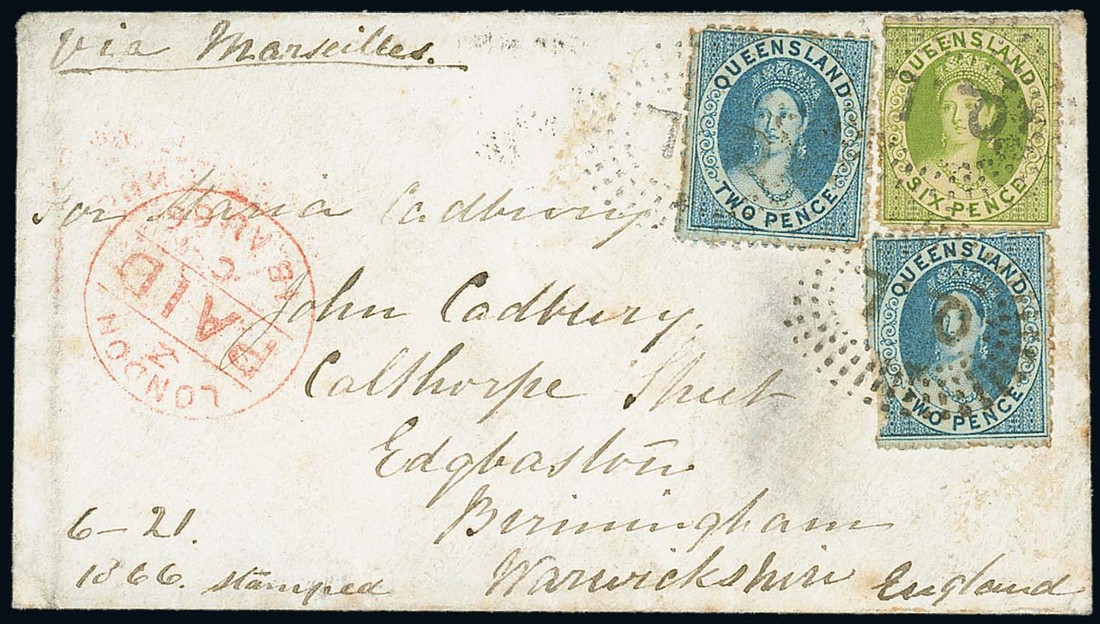 via Marseilles.
QUEENSLAND
TWO PENCE
QUEENSLAND
SIX PENCE
QUEENSLAND
TWO PENCE
For Maria Cadbury
John Cadbury,
Calthorpe Street
Edgbaston
Birmingham
Warwickshire England
LONDON
Z
PAID
C
18 AU 66
6-21.
1866. stamped